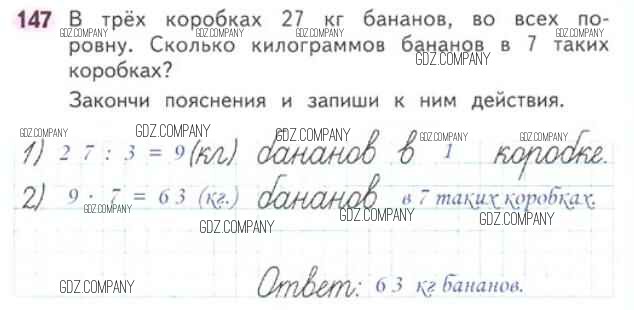 147 В трёх коробках 27 кг бананов, во всех по-
GDZ.COMPANY GDZ.COMPANY GDZ.COMPANY
ровну. Сколько килограммов бананов в 7 таких
GDZ.COMPANY
коробках?
Закончи пояснения и запиши к ним действия.
GDZ.COMPANY GDZ.COMPANY GDZ.COMPANY GDZ.COMPANY GDZ.COMPANY
1) 27 : 3 = 9 (кг) бананов в 1 коробке.
2) 9 · 7 = 63 (кг.) бананов в 7 таких коробках.
GDZ.COMPANY GDZ.COMPANY GDZ.COMPANY
GDZ.COMPANY
GDZ.COMPANY GDZ.COMPANY
Ответ: 63 кг бананов.